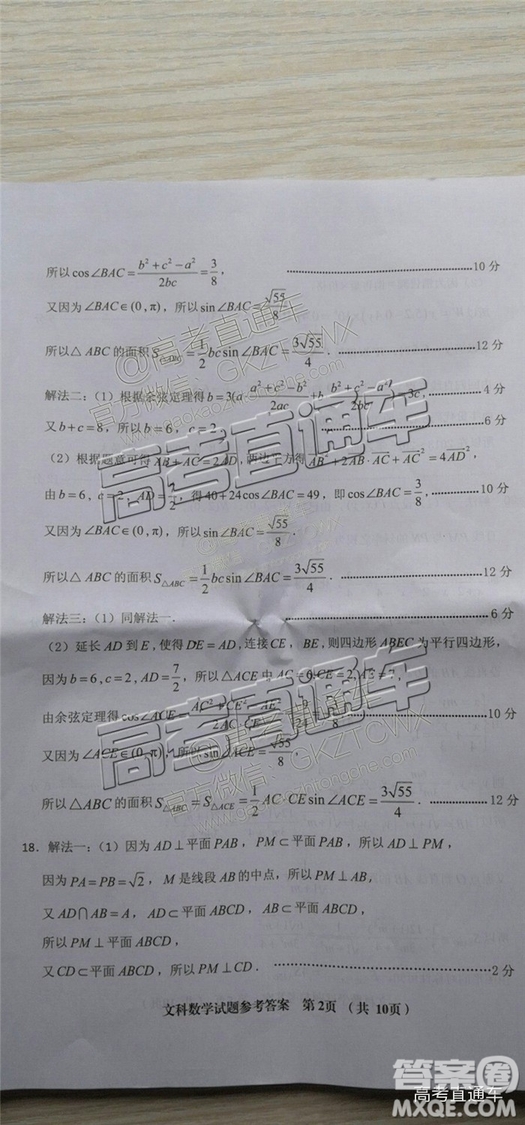 所以 cos∠BAC = (b² + c² − a²)/(2bc) = 3/8， 10分
又因为∠BAC∈(0, π)，所以 sin∠BAC = √55/8．
所以△ABC 的面积 S△ABC = 1/2 bc sin∠BAC = 3√55/4． 12分
解法二：（1）根据余弦定理得 b = 3(a·(a² + c² − b²)/(2ac) + b·(b² + c² − a²)/(2bc)) = 3c， 4分
又 b + c = 8，所以 b = 6，c = 2． 6分
（2）根据题意可得 AB + AC = 2AD，两边平方得 AB² + 2AB·AC + AC² = 4AD²，
由 b = 6，c = 2，AD = 7/2，得 40 + 24cos∠BAC = 49，即 cos∠BAC = 3/8， 10分
又因为∠BAC∈(0, π)，所以 sin∠BAC = √55/8．
所以△ABC 的面积 S△ABC = 1/2 bc sin∠BAC = 3√55/4． 12分
解法三：（1）同解法一． 6分
（2）延长 AD 到 E，使得 DE = AD，连接 CE，BE，则四边形 ABEC 为平行四边形，
因为 b = 6，c = 2，AD = 7/2，所以△ACE 中 AC = 6，CE = 2，AE = 7，
由余弦定理得 cos∠ACE = (AC² + CE² − AE²)/(2AC·CE) 10分
又因为∠ACE∈(0, π)，所以 sin∠ACE = √55/8．
所以△ABC 的面积 S△ABC = S△ACE = 1/2 AC·CE sin∠ACE = 3√55/4． 12分
18．解法一：（1）因为 AD⊥平面 PAB，PM⊂平面 PAB，所以 AD⊥PM，
因为 PA = PB = √2，M 是线段 AB 的中点，所以 PM⊥AB，
又 AD∩AB = A，AD⊂平面 ABCD，AB⊂平面 ABCD，
所以 PM⊥平面 ABCD，
又 CD⊂平面 ABCD，所以 PM⊥CD． 2分
文科数学试题参考答案 第2页（共 10页）
@高考直通车
官方微信：GKZTCWX
高考直通车
高考直通车
官方微信：GKZTCWX
答案圈
高考直通车
MXQE.COM